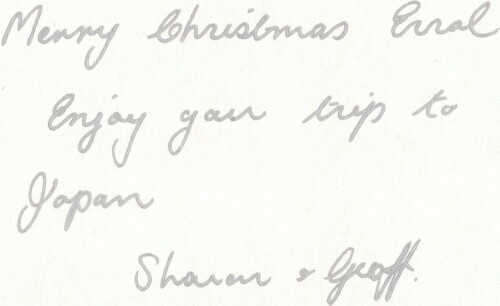 Merry Christmas Errol
Enjoy your trip to
Japan
Sharon & Geoff.